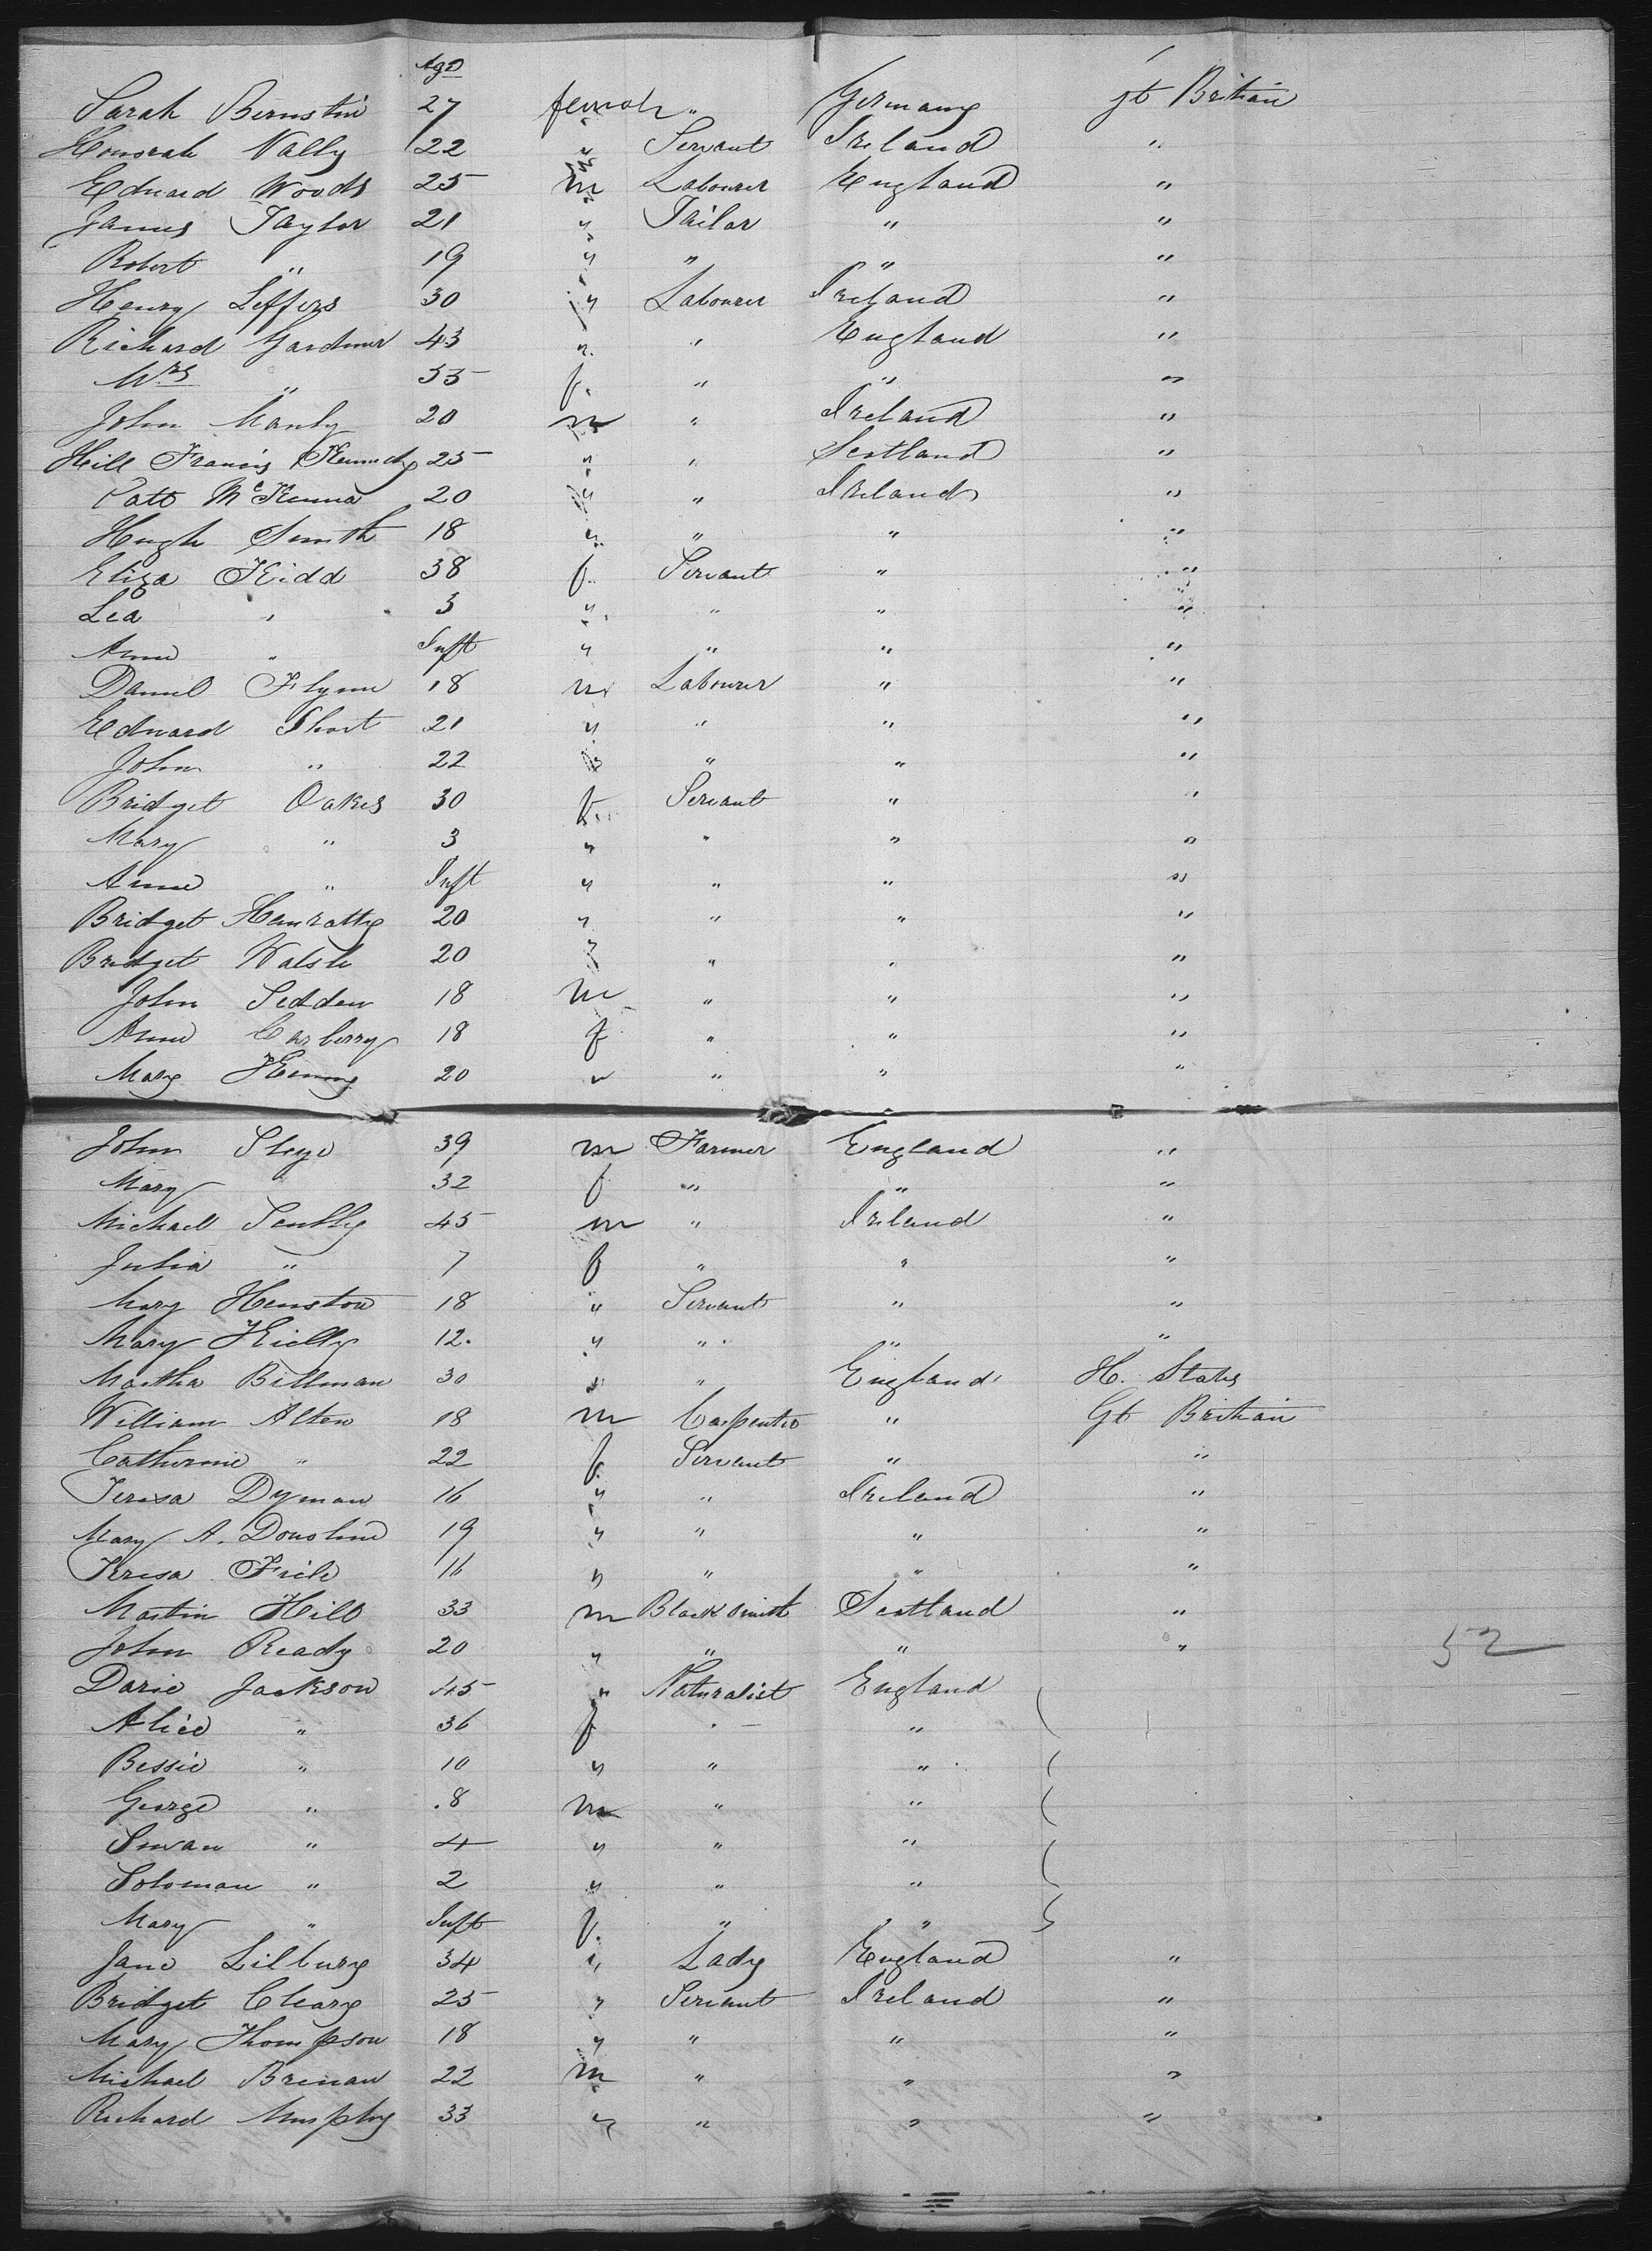 Age
Sarah Bernstin 27 female " Germany gt Britian
Honorah Nally 22 " Servant Ireland "
Edward Woods 25 m Labourer England "
James Taylor 21 " Tailor " "
Robert " 19 " " " "
Henry Leffers 30 " Labourer Ireland "
Richard Gardner 43 " " England "
Mrs " 35 f. " " "
John Manly 20 m " Ireland "
Hill Francis Kennedy 25 " " Scotland "
Patt McKenna 20 " " Ireland "
Hugh Smith 18 " " " "
Eliza Kidd 38 f. Servant " "
Lea " 3 " " " "
Anne " Inft " " " "
Daniel Flynn 18 m Labourer " "
Edward Short 21 " " " "
John " 22 " " " "
Bridget Oakes 30 f. Servant " "
Mary " 3 " " " "
Anne " Inft " " " "
Bridget Hanratty 20 " " " "
Bridget Walsh 20 " " " "
John Sedden 18 m " " "
Anne Carberry 18 f " " "
Mary 20 " " " "
John 39 m Farmer England "
Mary 32 f " " "
Michael Scully 45 m " Ireland "
Julia " 7 f " " "
Mary Henston 18 " Servant " "
Mary Kielly 12. " " " "
Martha Billman 30 " " England H. States
William Alten 18 m Carpenter " Gt Britian
Catherine " 22 f. Servant " "
Teresa Dyman 16 " " Ireland "
Mary A. Donohue 19 " " " "
Teresa 16 " " " "
Martin Hill 33 m Blacksmith Scotland "
John Ready 20 " " " " 52
Darie Jackson 45 " Naturalist England
Alice " 36 f " "
Bessie " 10 " " "
George " 8 m " "
Swan " 4 " " "
Soloman " 2 " " "
Mary " Inft f. " "
Jane Lilbury 34 " Lady England "
Bridget Cleary 25 " Servant Ireland "
Mary Thompson 18 " " " "
Michael Brenan 22 m " " "
Richard Murphy 33 " " " "